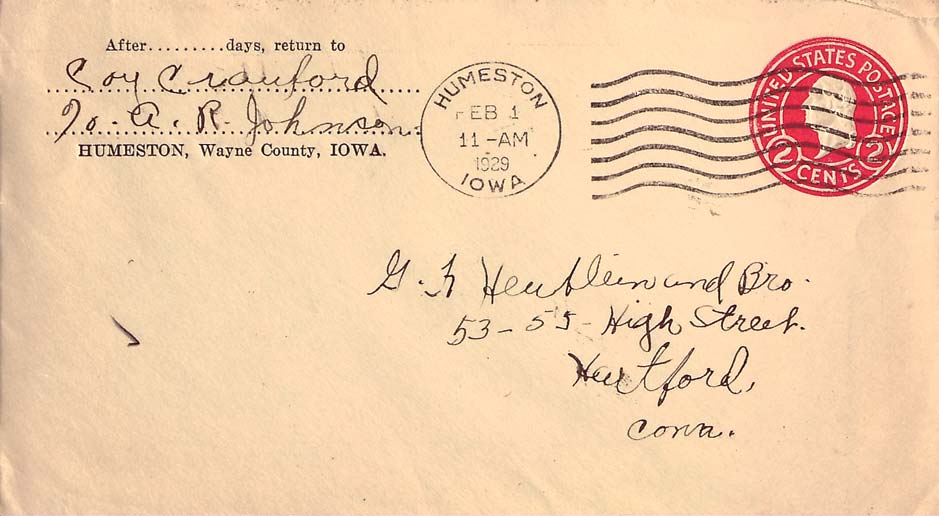 After.........days, return to
Coy Crawford
%. A. R. Johnson.
HUMESTON, Wayne County, IOWA.
HUMESTON
FEB 1
11-AM
1929
IOWA
UNITED STATES POSTAGE
2 CENTS 2
G. F Heublein and Bro.
53-55- High Street.
Hartford,
Conn.